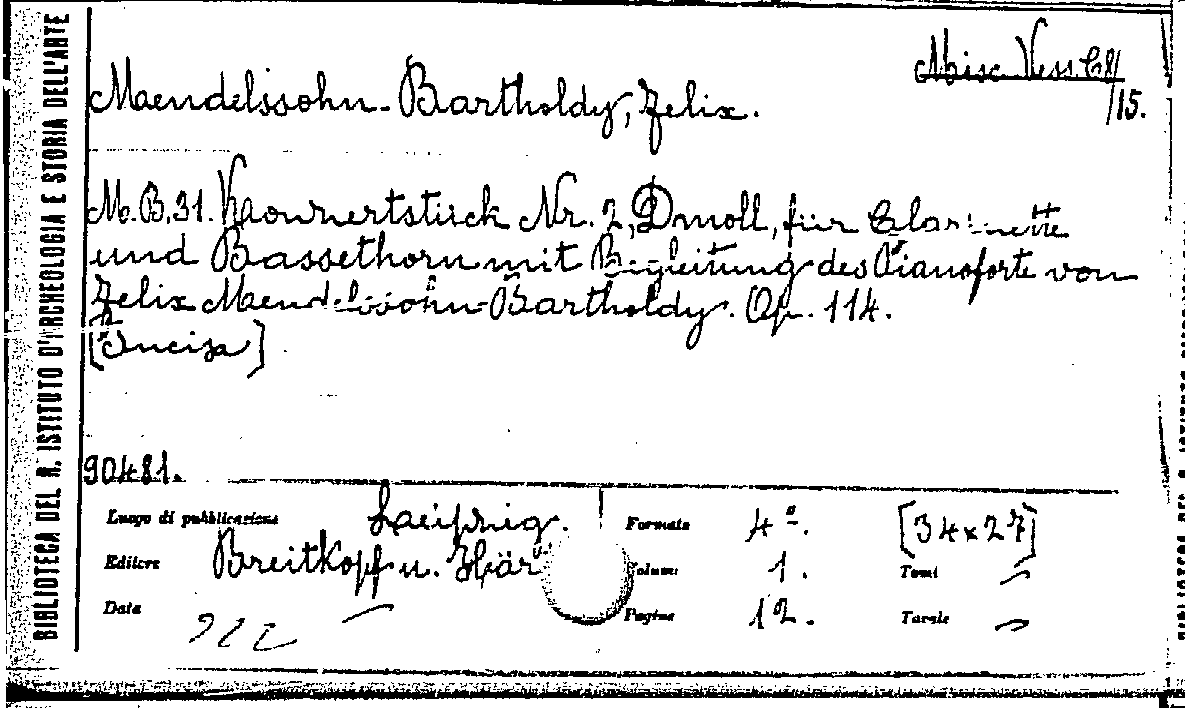 BIBLIOTECA DEL R. ISTITUTO D'ARCHEOLOGIA E STORIA DELL'ARTE
Misc. Vess. C8/
/15.
Maendelssohn-Bartholdy, Felix.
M.B.31. Kaonzertstück Nr. 2, Dmoll, für Clarinette
und Bassethorn mit Begleitung des Pianoforte von
Felix Maendelssohn-Bartholdy. Op. 114.
[Incisa]
90481.
Luogo di pubblicazione Laeipzig. Formato 4º. [34×27]
Editore Breitkopf u. Här Volumi 1. Tomi —
Data — Pagine 12. Tavole —